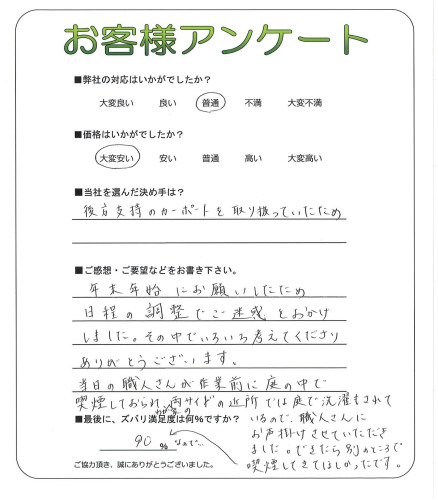 お客様アンケート
■弊社の対応はいかがでしたか？
大変良い 良い 普通 不満 大変不満
■価格はいかがでしたか？
大変安い 安い 普通 高い 大変高い
■当社を選んだ決め手は？
後方支持のカーポートを取り扱っていたため
■ご感想・ご要望などをお書き下さい。
年末年始にお願いしたため
日程の調整でご迷惑をおかけ
しました。その中でいろいろ考えてくださり
ありがとうございます。
当日の職人さんが作業前に庭の中で
喫煙しておられ、両サイドの近所では庭で洗濯をされて
いるので、職人さんに
お声掛けさせていただき
ました。できたら別のところで
喫煙してきてほしかったです。
■最後に、ズバリ満足度は何％ですか？
90 % なので…
ご協力頂き、誠にありがとうございました。